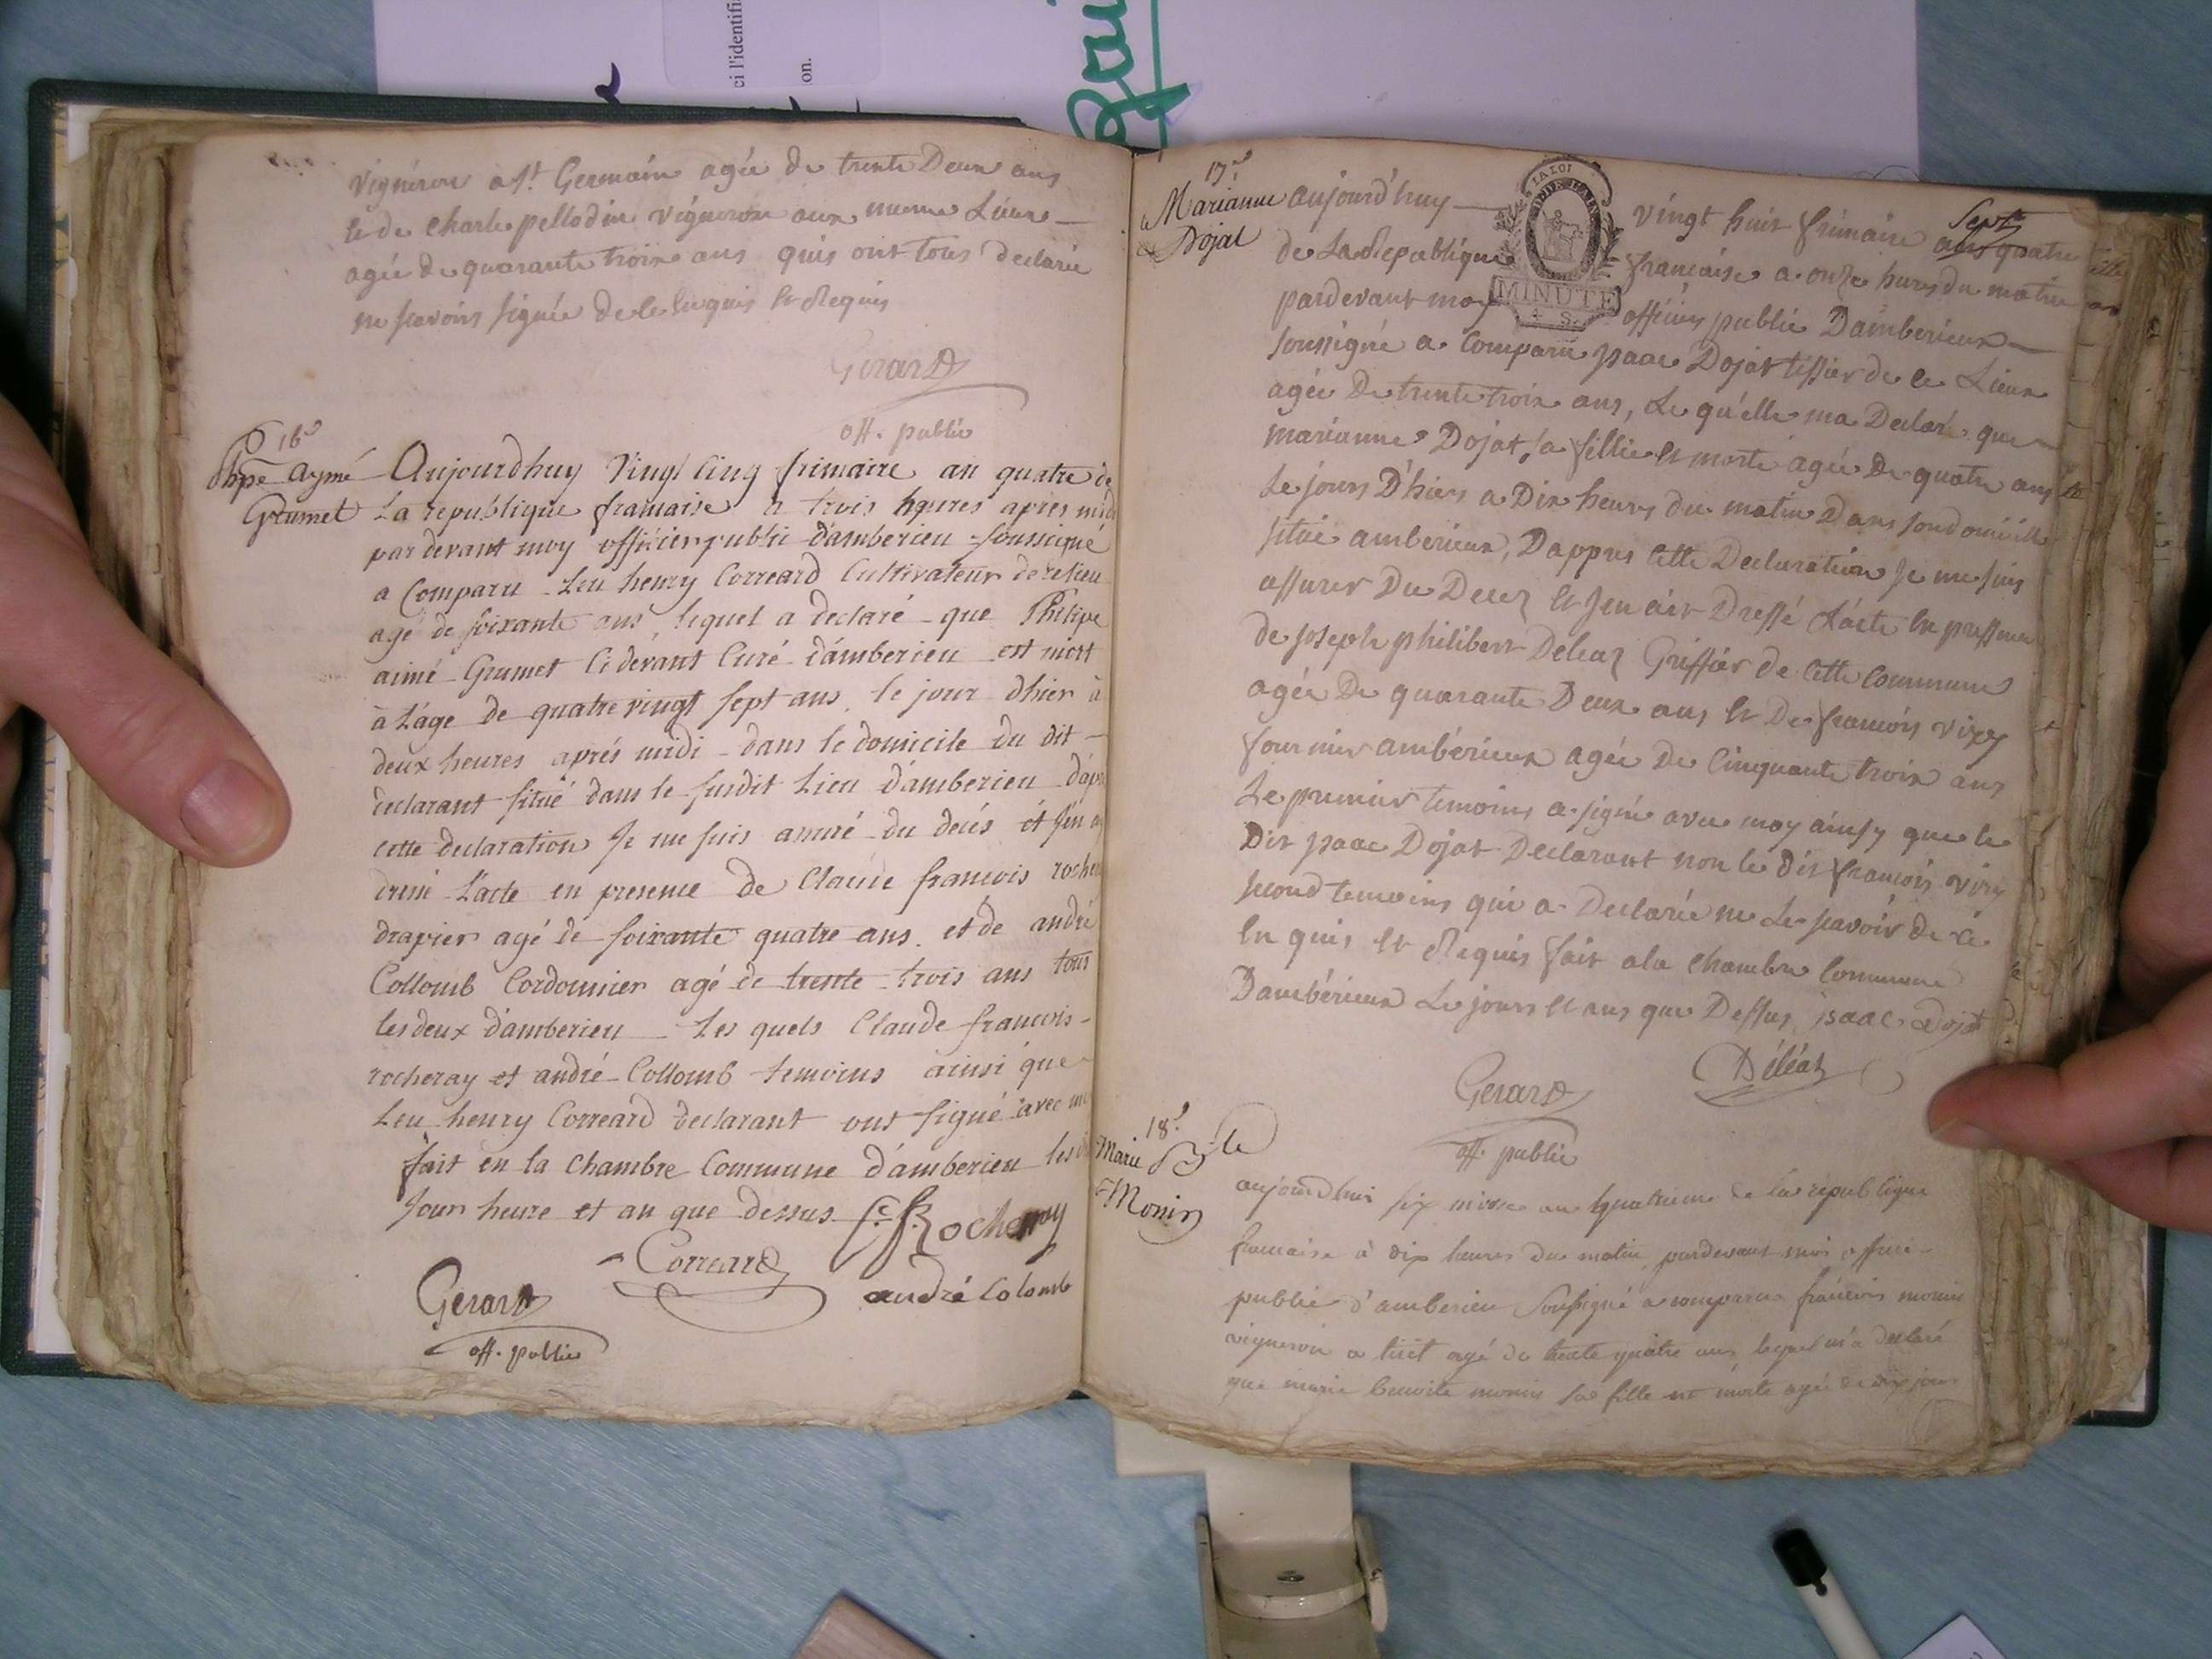 ci l'identifi
on.
vignéron a St. Germain agée de trente Deux ans
et de Charle pellodin vigneron aux meme Lieux
agée de quarante troix ans quis ont tous declarée
ne scavoirs signée de ce enquis et Requis
Gerard
off. public
16e
Phpe aymé
Grumet
Aujourdhuy vingt cinq frimaire an quatre de
La republique francaise a trois heures apres midi
par devant moy officier public d'amberieu soussigné
a Comparu Leu henry Correard Cultivateur de ce lieu
agé de soixante ans lequel a declaré que Philipe
aimé Grumet Ci devant Curé d'amberieu est mort
à L'age de quatre vingt sept ans le jour dhier à
deux heures aprés midi dans le domicile du dit
declarant situé dans le susdit Lieu d'amberieu d'apr
cette declaration Je me suis assuré du decés et J'en a
dressé L'acte en presence de Claude francois roche
drapier agé de soixante quatre ans et de andré
Collomb Cordonnier agé de trente trois ans tous
les deux d'amberieu Les quels Claude francois
rocheray et andré Collomb temoins ainsi que
Leu henry Correard declarant ont signé avec
fait en la Chambre Commune d'amberieu les
Jour heure et an que dessus C. f. Rocheray
Correard
Gerard
andré Colomb
off. public
17e
Marianne
Dojat
LA LOI
MINUTE
aujourd'huy vingt huit frimaire ans quatre
Sept
de La Republique francaise a onze hures du matin
pardevant moy officiers public Dambérieux
soussigné a Comparu jsaac Dojat tissier de ce Lieux
agée De trente troix ans, Le qu'elle ma Declaré que
marianne Dojat sa fillie et morte agée De quatre ans
Le jours D'hiers a Dix heurs du matin Dans son domicille
située ambérieux, Dappres Cette Declaration Je me suis
assurer Du Decez et Jen ait Dressé L'acte en pressence
de joseph philibert Deleaz Griffier de Cette Commune
agée De quarante Deux ans et De francois viry
fournier ambérieux agée De Cinquante troix ans
Le premier temoins a signé avec moy ainsy que le
Dit jsaac Dojat Declarant non le Dit francois viry
second temoins qui a Declarée ne Le scavoir de ce
en quis et Requis fait a la Chambre Commune
Dambérieux Le jours et ans que Dessus isaac Dojat
Déléaz
Gerard
off. public
18e
Marie
Monin
aujourdhui six nivose an quatrieme de la republique
francaise à dix heures du matin pardevant moi officié
public d'amberieu soussigné a comparu francois monin
vigneron a tiret agé de trente quatre ans lequel m'a declaré
que marie benoite monin sa fille est morte agée de six jour